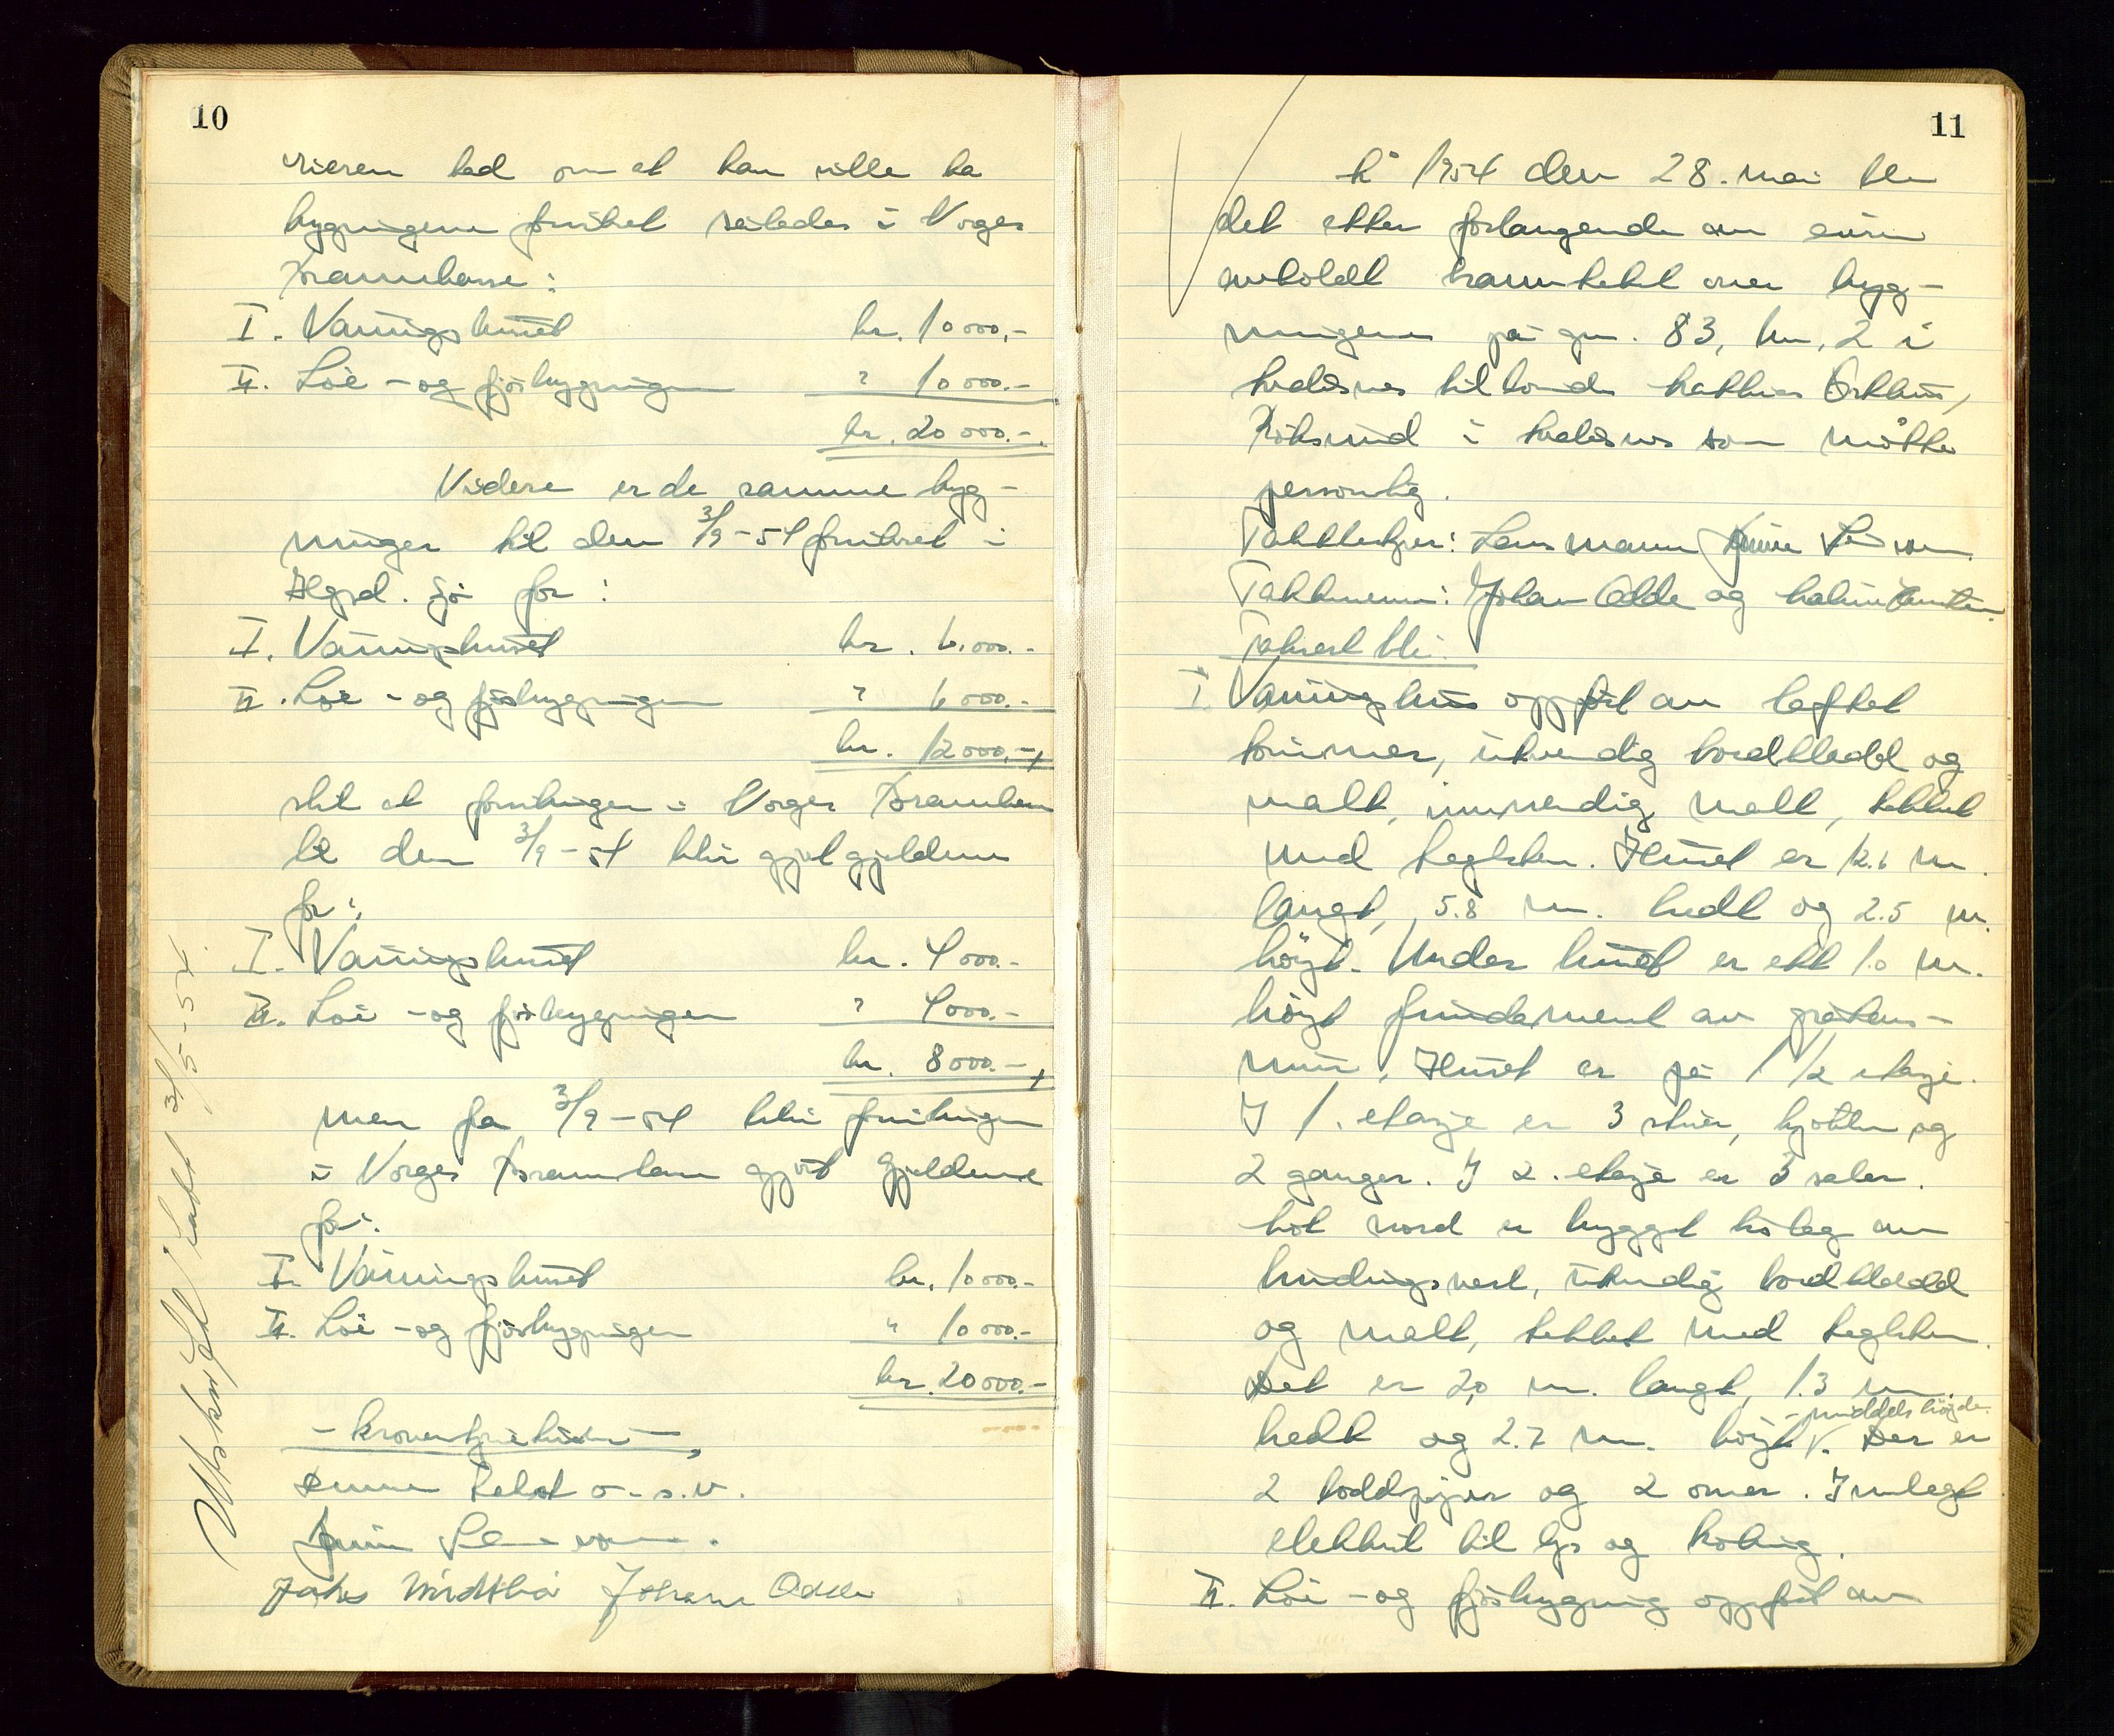 10
rieren bad om at han ville ha
bygningene forsikret således i Norges
Brannkasse:
I. Våningshuset kr. 10000.-
II. Löe - og fjösbygningen " 10000.-
kr. 20000.-
Videre er de samme byg-
ninger til den 3/9-54 forsikret i
Hgsd. Sjö for:
I. Våningshuset kr. 6000.-
II. Löe - og fjösbygningen " 6000.-
kr. 12000.-
slik at forsikringen i Norges Brannkasse
til den 3/9-54 blir gjort gjeldene
for:
I. Våningshuset kr. 4000.-
II. Löe - og fjösbygningen " 4000.-
kr. 8000.-
men fra 3/9-54 blir forsikringen
i Norges Brannkasse gjort gjeldene
for:
I. Våningshuset kr. 10000.-
II. Löe - og fjösbygningen " 10000.-
kr. 20000.-
- kroner tjuetusen -
Denne takst o.s.v.
Johan Odde
Utskrift sendt 31/5-54.
11
År 1954 den 28. mai ble
det etter forlangende av eieren
avholdt branntakst over byg-
ningene på gnr. 83, bnr. 2 i
tilhörende
i som mötte
personlig.
Takstbestyrer: Lensmann
Takstmenn: Johan Odde og
Taksert ble:
I. Våningshus oppfört av laftet
tömmer, utvendig bordkledd og
malt, innvendig malt, tekket
med teglsten. Huset er 12.6 m.
langt, 5.8 m. bredt og 2.5 m.
höyt. Under huset er ett 1.0 m.
höyt fundament av gråstens-
mur. Huset er på 1 1/2 etasje.
I 1. etasje er 3 stuer, kjökken og
2 ganger. I 2. etasje er 3 saler.
Mot nord er bygget tilbygg av
bindingsverk, utvendig bordkledd
og malt, tekket med teglsten.
Det er 2,0 m. langt, 1.3 m.
bredt og 2.7 m. höyt - middels höyde. Der er
2 loddpiper og 2 ovner. Innlagt
elektrisk til lys og koking.
II. Löe - og fjösbygning oppfört av